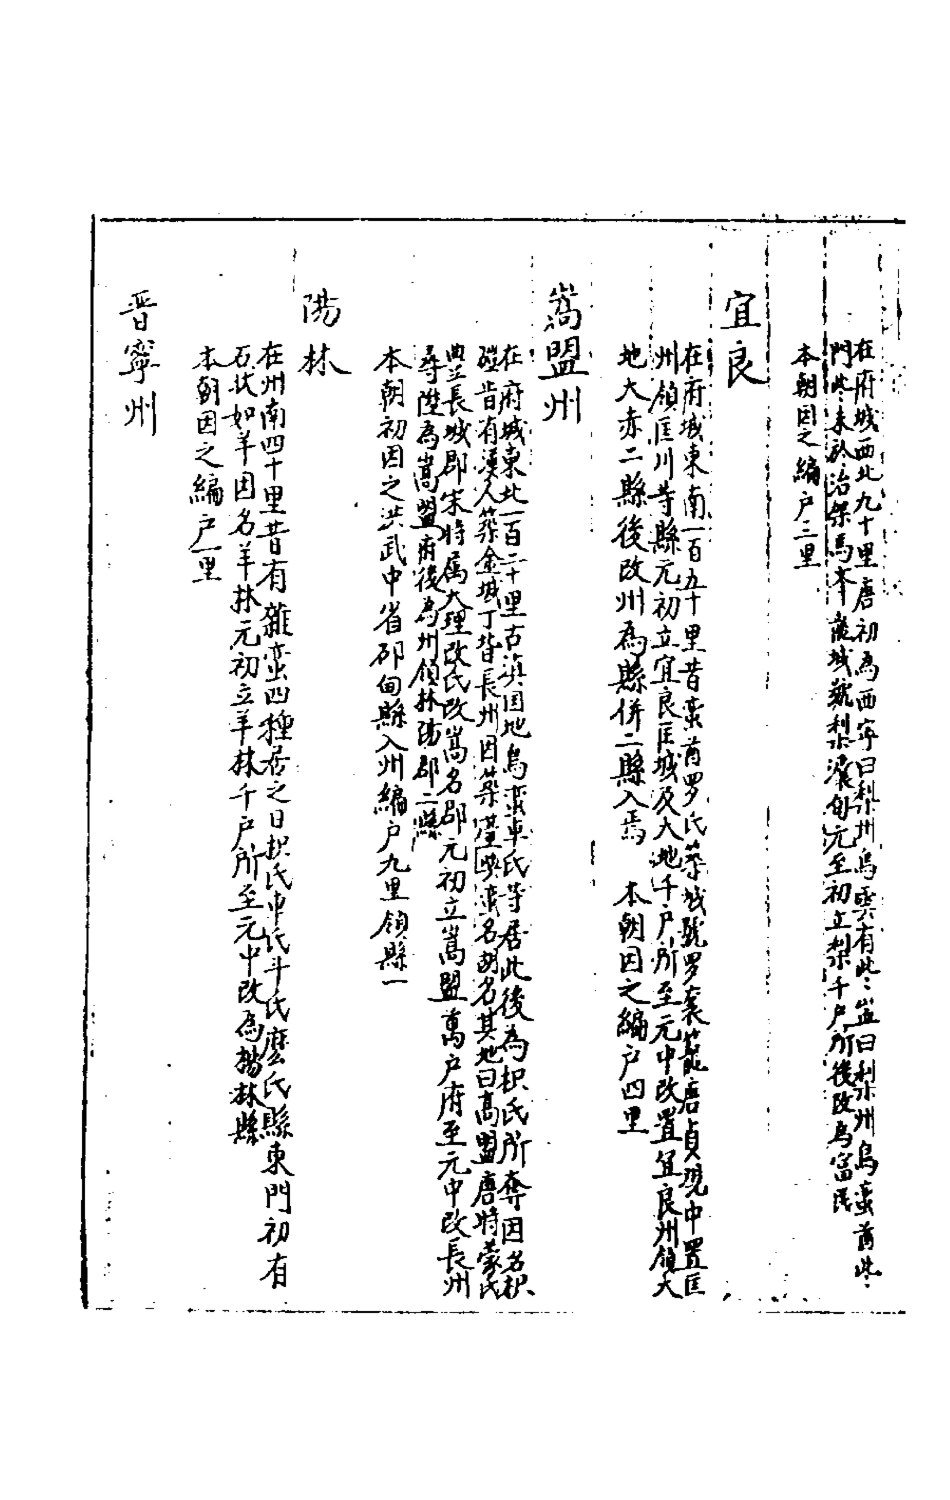 在府城西北九十里唐初為西寧曰梨州烏雲有些些崀曰利州烏蠻酋些些
門些末於治祭馬本龍城號利浪甸元至初立梨千户所後改為富民
本朝因之編户三里
宜良
在府城東南一百九十里昔蠻酋罗氏築城號罗裒籠唐貞观中置匡
州領匡川等縣元初立宜良匡城及大池千户所至元中改置宜良州領大
地大赤二縣後改州為縣併二縣入焉 本朝因之編户四里
嵩盟州
在府城東北一百二十里古滇国地烏蛮車氏等居此後為枳氏所奪因名枳
磋昔有漢人築金城丁皆長州因築臺與蛮名胡名其地曰嵩盟唐時蒙氏
興立長城郡宋時属大理改氏改嵩名郡元初立嵩盟萬户府至元中改長州
尋陞為嵩盟府後為州領林陽邵二縣
本朝初因之洪武中省邵甸縣入州編户九里領縣一
陽林
在州南四十里昔有雜蛮四種居之曰枳氏車氏斗氏麽氏縣東門初有
石状如羊因名羊林元初立羊林千户所至元中改為楊林縣
本朝因之編户一里
晋寧州